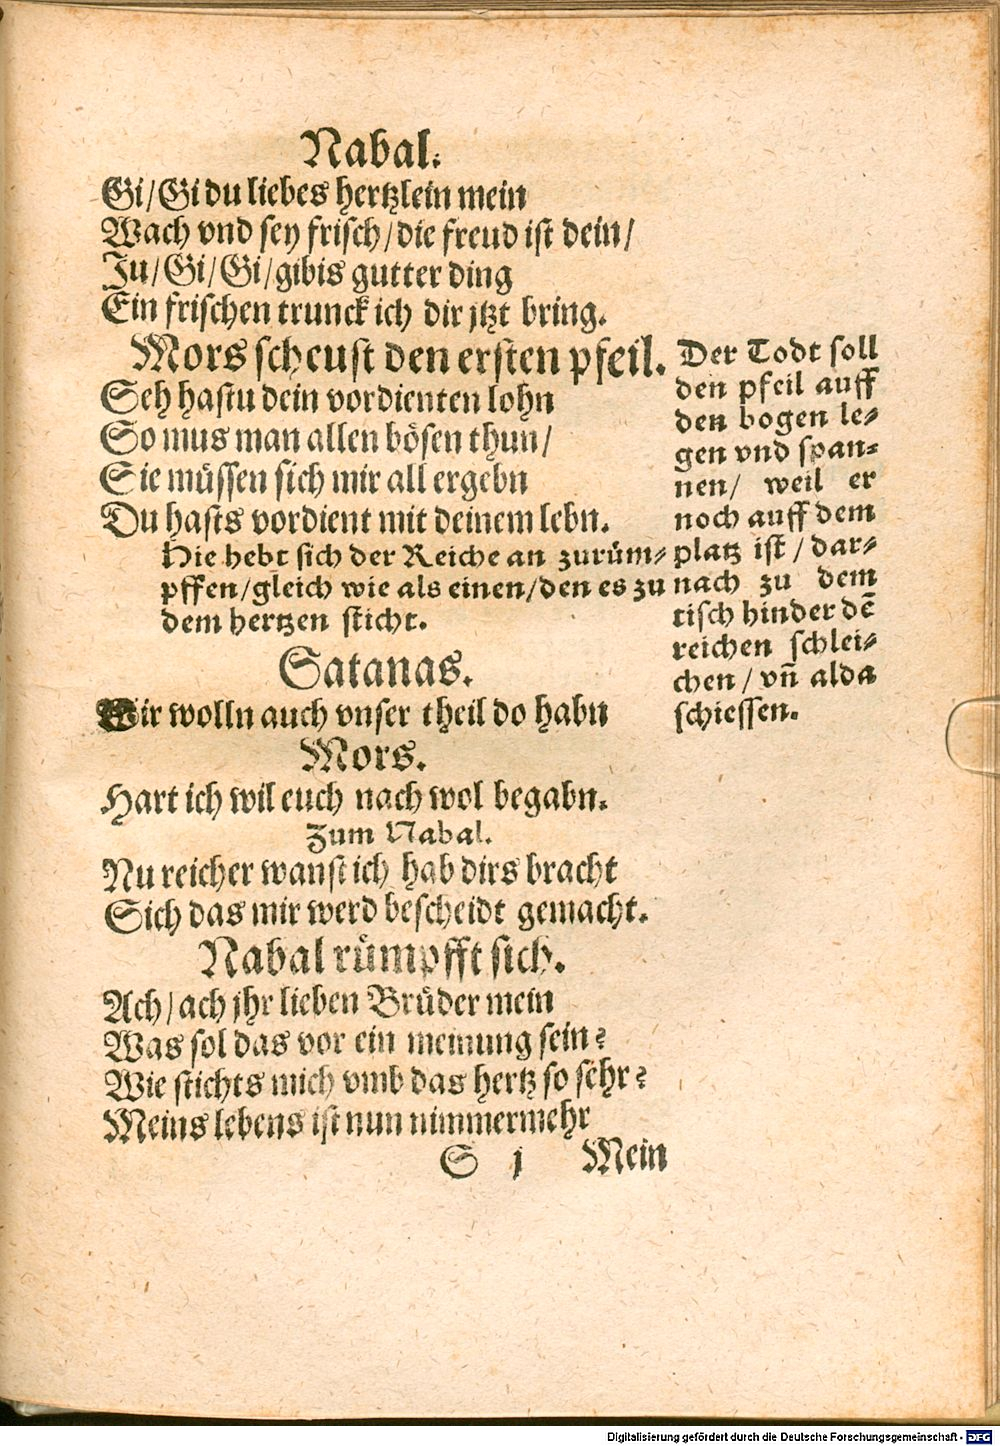 Nabal.
Gi/Gi du liebes hertzlein mein
Wach vnd sey frisch/die freud ist dein/
Ju/Gi/Gi/gibis gutter ding
Ein frischen trunck ich dir jtzt bring.
Mors scheust den ersten pfeil.
Seh hastu dein vordienten lohn
So mus man allen bösen thun/
Sie müssen sich mir all ergebn
Du hasts vordient mit deinem lebn.
Hie hebt sich der Reiche an zurüm-
pffen/gleich wie als einen/den es zu
dem hertzen sticht.
Satanas.
Wir wolln auch vnser theil do habn
Mors.
Hart ich wil euch nach wol begabn.
Zum Nabal.
Nu reicher wanst ich hab dirs bracht
Sich das mir werd bescheidt gemacht.
Nabal rümpfft sich.
Ach/ach jhr lieben Brüder mein
Was sol das vor ein meinung sein?
Wie stichts mich vmb das hertz so sehr?
Meins lebens ist nun nimmermehr
S j Mein
Der Todt soll
den pfeil auff
den bogen le-
gen vnd span-
nen/ weil er
noch auff dem
platz ist/dar-
nach zu dem
tisch hinder dē
reichen schlei-
chen/vn̄ alda
schiessen.
Digitalisierung gefördert durch die Deutsche Forschungsgemeinschaft - DFG